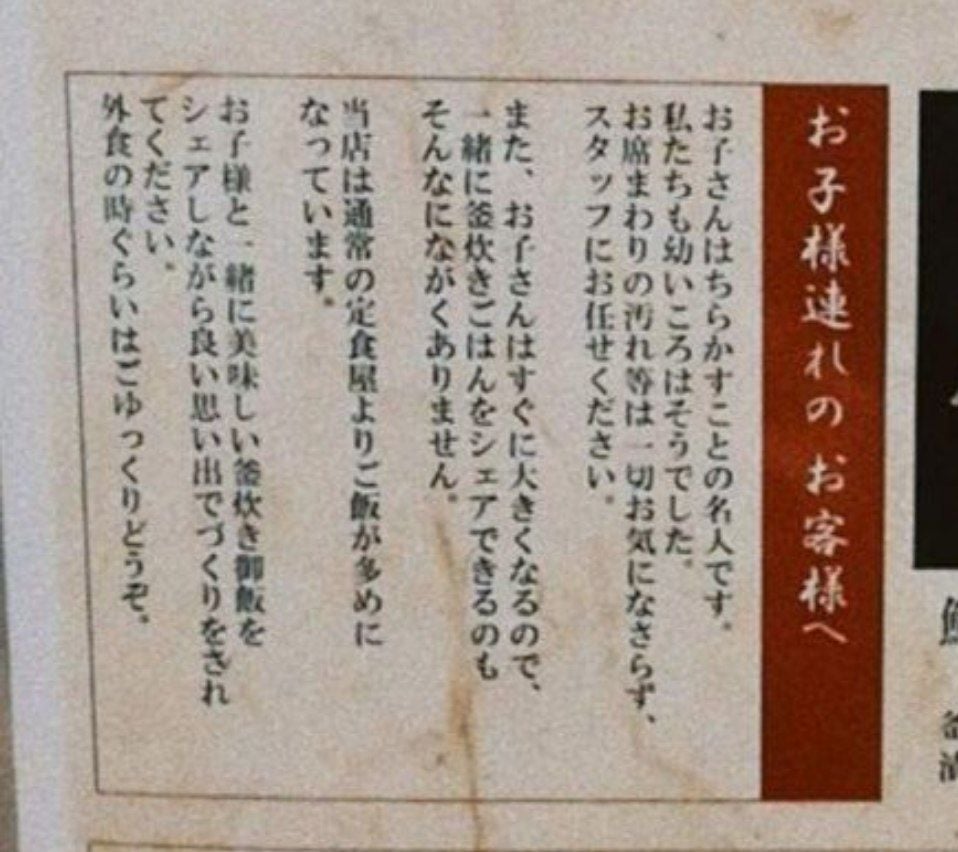 お子様連れのお客様へ
お子さんはちらかすことの名人です。
私たちも幼いころはそうでした。
お席まわりの汚れ等は一切お気になさらず、
スタッフにお任せください。
また、お子さんはすぐに大きくなるので、
一緒に釜炊きごはんをシェアできるのも
そんなにながくありません。
当店は通常の定食屋よりご飯が多めに
なっています。
お子様と一緒に美味しい釜炊き御飯を
シェアしながら良い思い出でづくりをされ
てください。
外食の時ぐらいはごゆっくりどうぞ。